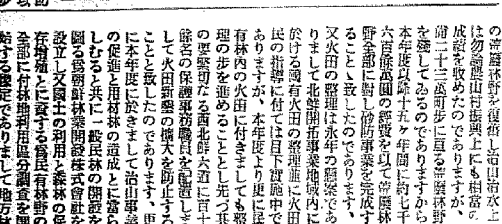 の荒廃林野を復旧し治山治水
は勿論農山村振興上にも相当の
成績を收めたのでありますが、
尚二十三萬町歩に亘る荒廃林野
を殘してゐるのでありますから
本年度以降十五ヶ年間に約七千
六百餘萬圓の經費を以て荒廃林
野全部に對し砂防事業を完成す
ることゝ致したのであります。
又火田の整理は永年の懸案であ
りまして北鮮開拓事業地域内に
於ける國有火田の整理並に火田
民の指導に付ては目下實施中で
ありますが、本年度より更に民
有林内の火田に付きましても整
理の歩を進めることとし先づ其
の要緊切なる西北鮮六道に百十
餘名の保護事務職員を配置しま
して火田新墾の擴大を防止する
ことと致したのであります。更
に本年度に於きまして治山事業
の促進と用材林の造成とに當ら
しむると共に一般民林の開發を
圖る爲朝鮮林業開發株式會社を
設立し又國土の利用と森林の保
存增殖とに資する爲民有林野の
全部に付林地利用區分調査を開
始する豫定でありまして地方